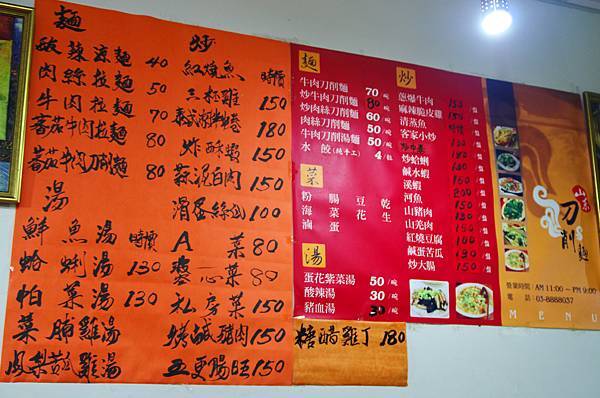 麵
酸辣涼麵 40
肉絲拉麵 50
牛肉拉麵 70
蕃茄牛肉拉麵 80
蕃茄牛肉刀削麵 80
湯
鮮魚湯 時價
蛤蜊湯 130
菜湯 130
菜脯雞湯
鳳梨苦瓜雞湯
炒
紅燒魚 時價
三杯雞 150
180
炸酥蝦 150
蒜泥白肉 150
滑蛋絲瓜 100
A菜 80
婆心菜 80
私房菜 150
烤鹹豬肉 150
五更腸旺 150
糖醋雞丁 180
麵
牛肉刀削麵 70/碗
炒牛肉刀削麵 80/碗
炒肉絲刀削麵 60/碗
肉絲刀削麵 50/碗
牛肉刀削湯麵 50/碗
水餃(純手工) 4/粒
菜
粉腸豆乾
海菜花生
滷蛋
湯
蛋花紫菜湯 50/碗
酸辣湯 30/碗
豬血湯 30/碗
炒
蔥爆牛肉 150/盤
麻辣脆皮雞
清蒸魚
客家小炒
炒蛤蜊
鹹水蝦
溪蝦
河魚
山豬肉
山羌肉
紅燒豆腐
鹹蛋苦瓜
炒大腸
山東
刀削麵
營業時間/AM 11:00 ~ PM 9:00
電話/03-8888037
MENU